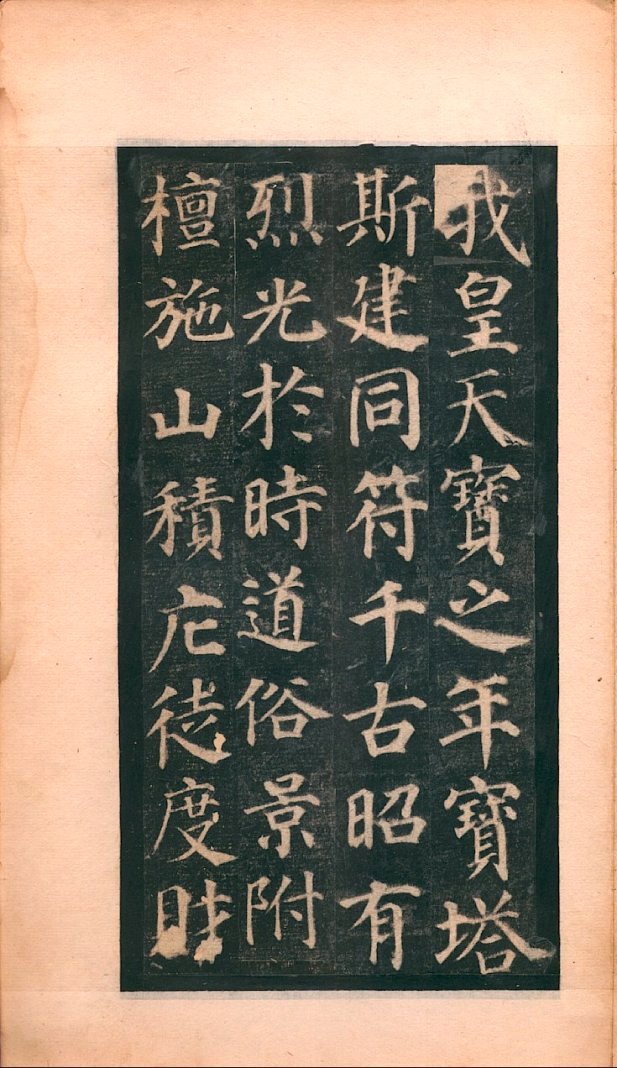 我皇天寶之年寶塔
斯建同符千古昭有
烈光於時道俗景附
檀施山積庀徒度財